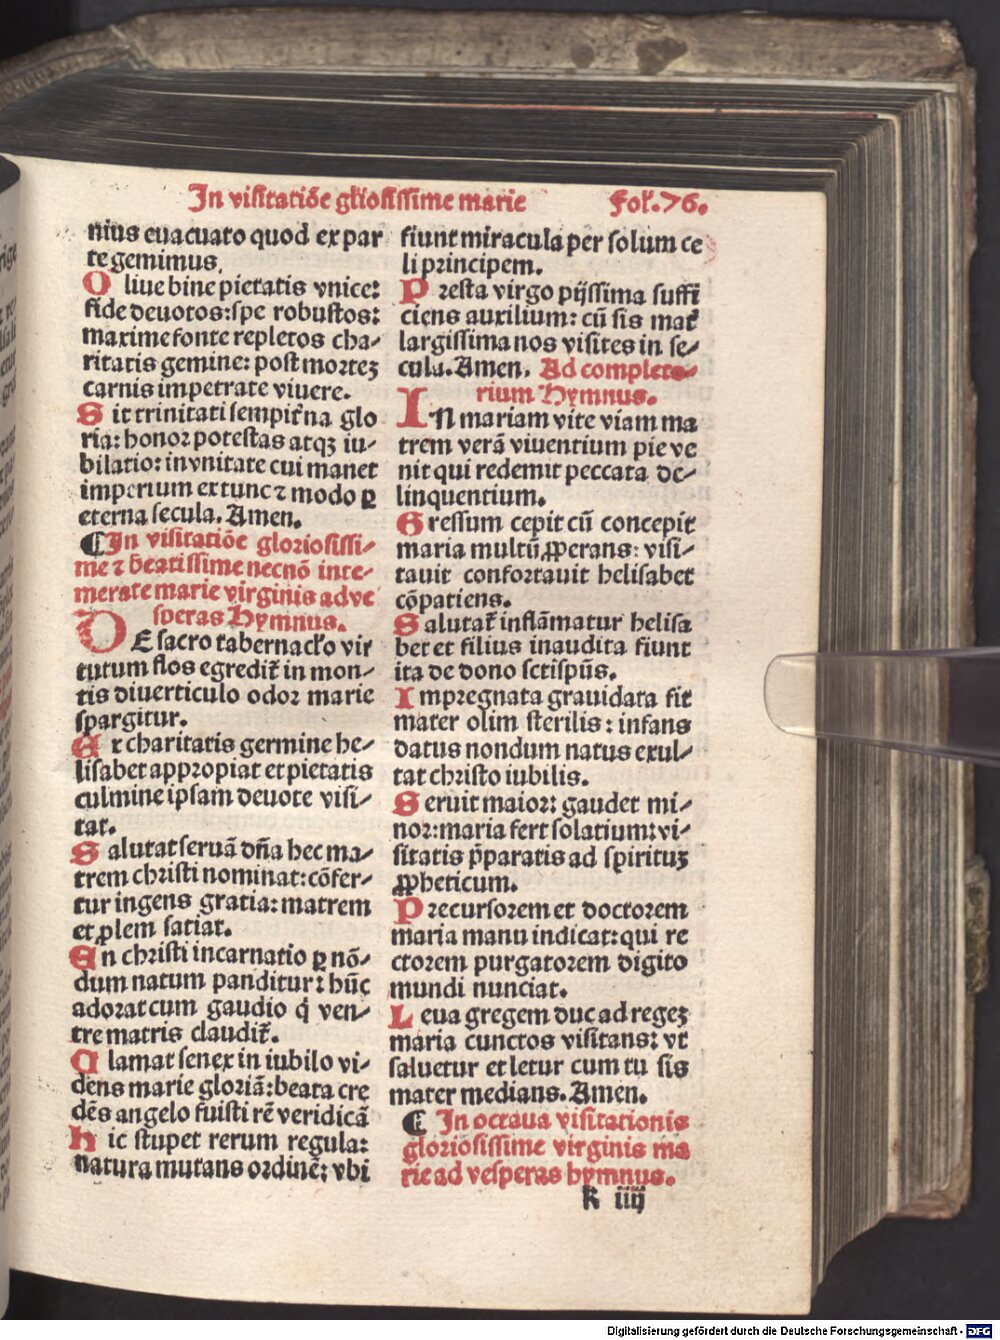 In visitatiōe gl'iosissime marie Fol'.76.
nius euacuato quod ex par
te gemimus.
O liue bine pietatis vnice:
fide deuotos: spe robustos:
maxime fonte repletos cha⸗
ritatis gemine: post mortēȝ
carnis impetrate viuere.
S it trinitati sempit'na glo
ria: honor potestas atqȝ iu⸗
bilatio: in vnitate cui manet
imperium ex tunc ⁊ modo ꝑ
eterna secula. Amen.
¶ In visitatiōe gloriosissi⸗
me ⁊ beatissime necnō inte⸗
merate marie virginis ad ve
speras Hymnus.
D E sacro tabernac'lo vir
tutum flos egredit' in mon⸗
tis diuerticulo odor marie
spargitur.
E x charitatis germine he⸗
lisabet appropiat et pietatis
culmine ipsam deuote visi⸗
tat.
S alutat seruā dn̄a hec ma⸗
trem christi nominat: cōfer⸗
tur ingens gratia: matrem
et ꝓlem satiat.
E n christi incarnatio ꝑ nō⸗
dum natum panditur: hūc
adorat cum gaudio q̇ ven⸗
tre matris claudit'.
C lamat senex in iubilo vi⸗
dens marie gloriā: beata cre
dēs angelo fuisti rē veridicā
H ic stupet rerum regula:
natura mutans ordinē: vbi
fiunt miracula per solum ce
li principem.
P resta virgo pijssima suffi
ciens auxilium: cū sis mat'
largissima nos visites in se⸗
cula. Amen. Ad completo⸗
rium Hymnus.
I N mariam vite viam ma
trem verā viuentium pie ve
nit qui redemit peccata de⸗
linquentium.
G ressum cepit cū concepit
maria multū ꝓperans: visi⸗
tauit confortauit helisabet
cōpatiens.
S alutat' inflāmatur helisa
bet et filius inaudita fiunt
ita de dono scti sp̄us.
I mpregnata grauidata fit
mater olim sterilis: infans
datus nondum natus exul⸗
tat christo iubilis.
S eruit maior: gaudet mi⸗
nor: maria fert solatium: vi⸗
sitatis p̄paratis ad spirituȝ
ꝓpheticum.
P recursorem et doctorem
maria manu indicat: qui re
ctorem purgatorem digito
mundi nunciat.
L eua gregem duc ad regeȝ
maria cunctos visitans: vt
saluetur et letur cum tu sis
mater medians. Amen.
¶ In octaua visitationis
gloriosissime virginis ma
rie ad vesperas hymnus.
k iiij
Digitalisierung gefördert durch die Deutsche Forschungsgemeinschaft - DFG